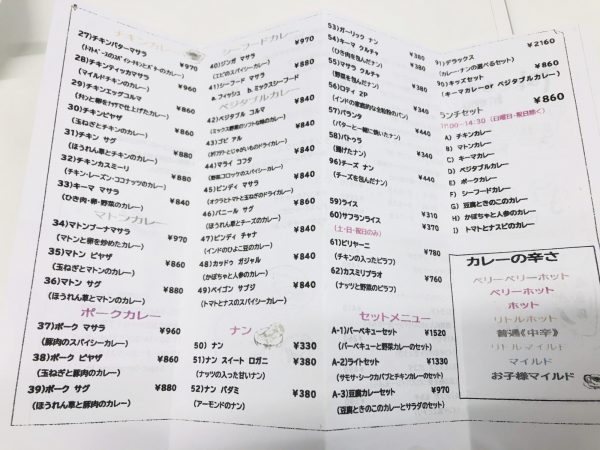 チキンカレー
27)チキンバターマサラ ¥970
28)チキンティッカマサラ ¥960
(マイルドチキンのカレー)
29)チキンエッグコルマ ¥880
30)チキンピヤザ ¥860
(玉ねぎとチキンのカレー)
31)チキン サグ ¥880
(ほうれん草とチキンのカレー)
32)チキンカスミーリ ¥880
(チキン・レーズン・ココナッツのカレー)
33)キーマ マサラ ¥880
(ひき肉・卵・野菜のカレー)
マトンカレー
34)マトンブーナマサラ ¥970
(マトンと卵を炒めたカレー)
35)マトン ピヤザ ¥860
(玉ねぎとマトンのカレー)
36)マトン サグ ¥880
(ほうれん草とマトンのカレー)
ポークカレー
37)ポーク マサラ ¥960
(豚肉のスパイシーカレー)
38)ポーク ピヤザ ¥860
(玉ねぎと豚肉のカレー)
39)ポーク サグ ¥880
(ほうれん草と豚肉のカレー)
シーフードカレー
40)ジンガ マサラ ¥970
(エビのスパイシーカレー)
41)シーフード マサラ ¥880
a.フィッシュ b.ミックスシーフード
ベジタブルカレー
42)ベジタブル コルマ ¥880
(ミックス野菜のソフトな味のカレー)
43)ゴビ アル ¥880
44)マライ コフタ ¥880
(野菜コロッケのスパイシーカレー)
45)ビンディ マサラ ¥880
(オクラとトマトと玉ねぎのドライカレー)
46)パニール サグ ¥880
(ほうれん草とチーズのカレー)
47)ビンディ チャナ ¥880
(インドのひよこ豆のカレー)
48)カッドゥ ガジャル ¥880
(かぼちゃと人参のカレー)
49)ベイゴン サブジ ¥880
(トマトとナスのスパイシーカレー)
ナン
50) ナン ¥330
51)ナン スイート ロガニ ¥380
(ナッツの入った甘いナン)
52)ナン バダミ ¥380
(アーモンドのナン)
53)ガーリック ナン
54)キーマ クルチャ
(ひき肉を包んだナン)
55)マサラ クルチャ
(野菜を包んだナン)
56)ロティ 2P
(インドの家庭的な全粒粉のパン)
57)パランタ
(バターと一緒に焼いたナン) ¥440
58)バトゥラ ¥340
(揚げたナン)
96)チーズ ナン ¥440
(チーズを包んだナン)
59)ライス ¥310
60)サフランライス ¥370
(土・日・祝日のみ)
61)ビリヤーニ ¥780
(チキンの入ったピラフ)
62)カスミリプラオ ¥760
(ナッツと野菜のピラフ)
セットメニュー
A-1)バーベキューセット ¥1520
(バーベキューと野菜カレーのセット)
A-2)ライトセット ¥1330
(サモサ・シークカバブとチキンカレーのセット)
A-3)豆腐カレーセット ¥970
(豆腐ときのこのカレーとサラダのセット)
91)デラックス ¥2160
(カレー・ナンの選べるセット)
90)キッズセット ¥860
(キーマカレーor ベジタブルカレー)
ランチセット ¥860
11:00-14:30 (日曜日・祝日除く)
A) チキンカレー
B) マトンカレー
C) キーマカレー
D) ベジタブルカレー
E) ポークカレー
F) シーフードカレー
G) 豆腐ときのこカレー
H) かぼちゃと人参のカレー
I) トマトとナスピのカレー
カレーの辛さ
ベリーベリーホット
ベリーホット
ホット
リトルホット
普通《中辛》
リトルマイルド
マイルド
お子様マイルド